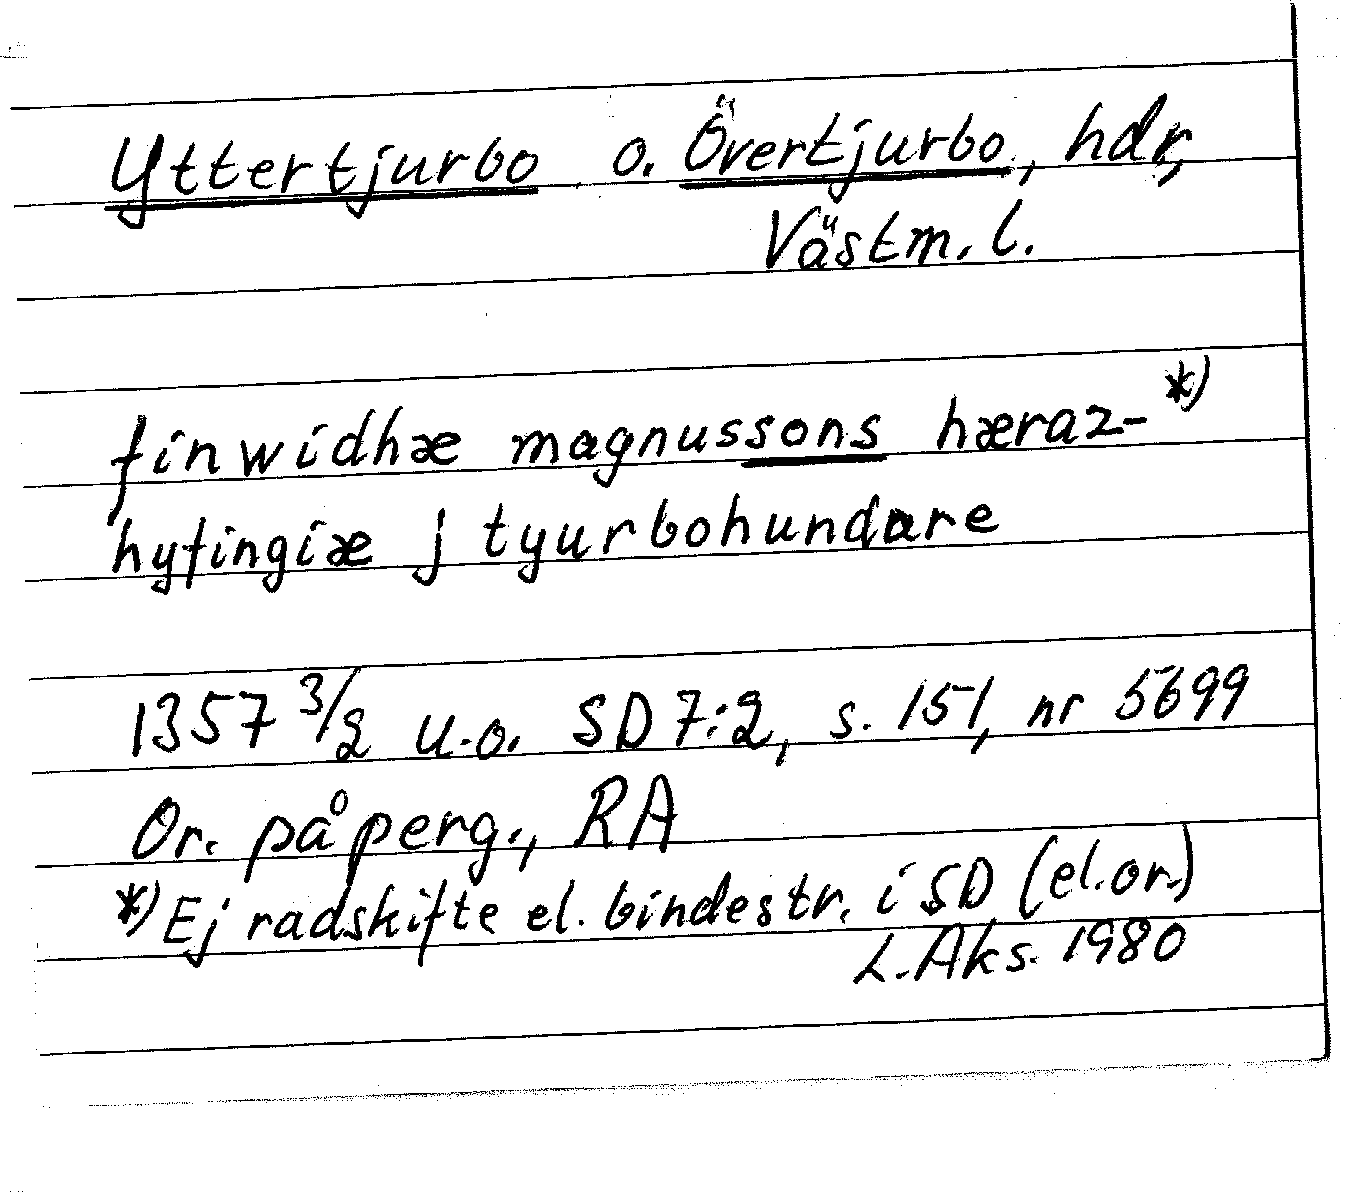 Yttertjurbo o. Övertjurbo, hdr,
Västm. l.
finwidhæ magnussons hæraz- *)
hyfingiæ j tyurbohundare
1357 3/2 u.o. SD 7:2, s. 151, nr 5699
Or. på perg., RA
*) Ej radskifte el. bindestr. i SD (el. or.)
L. Aks. 1980